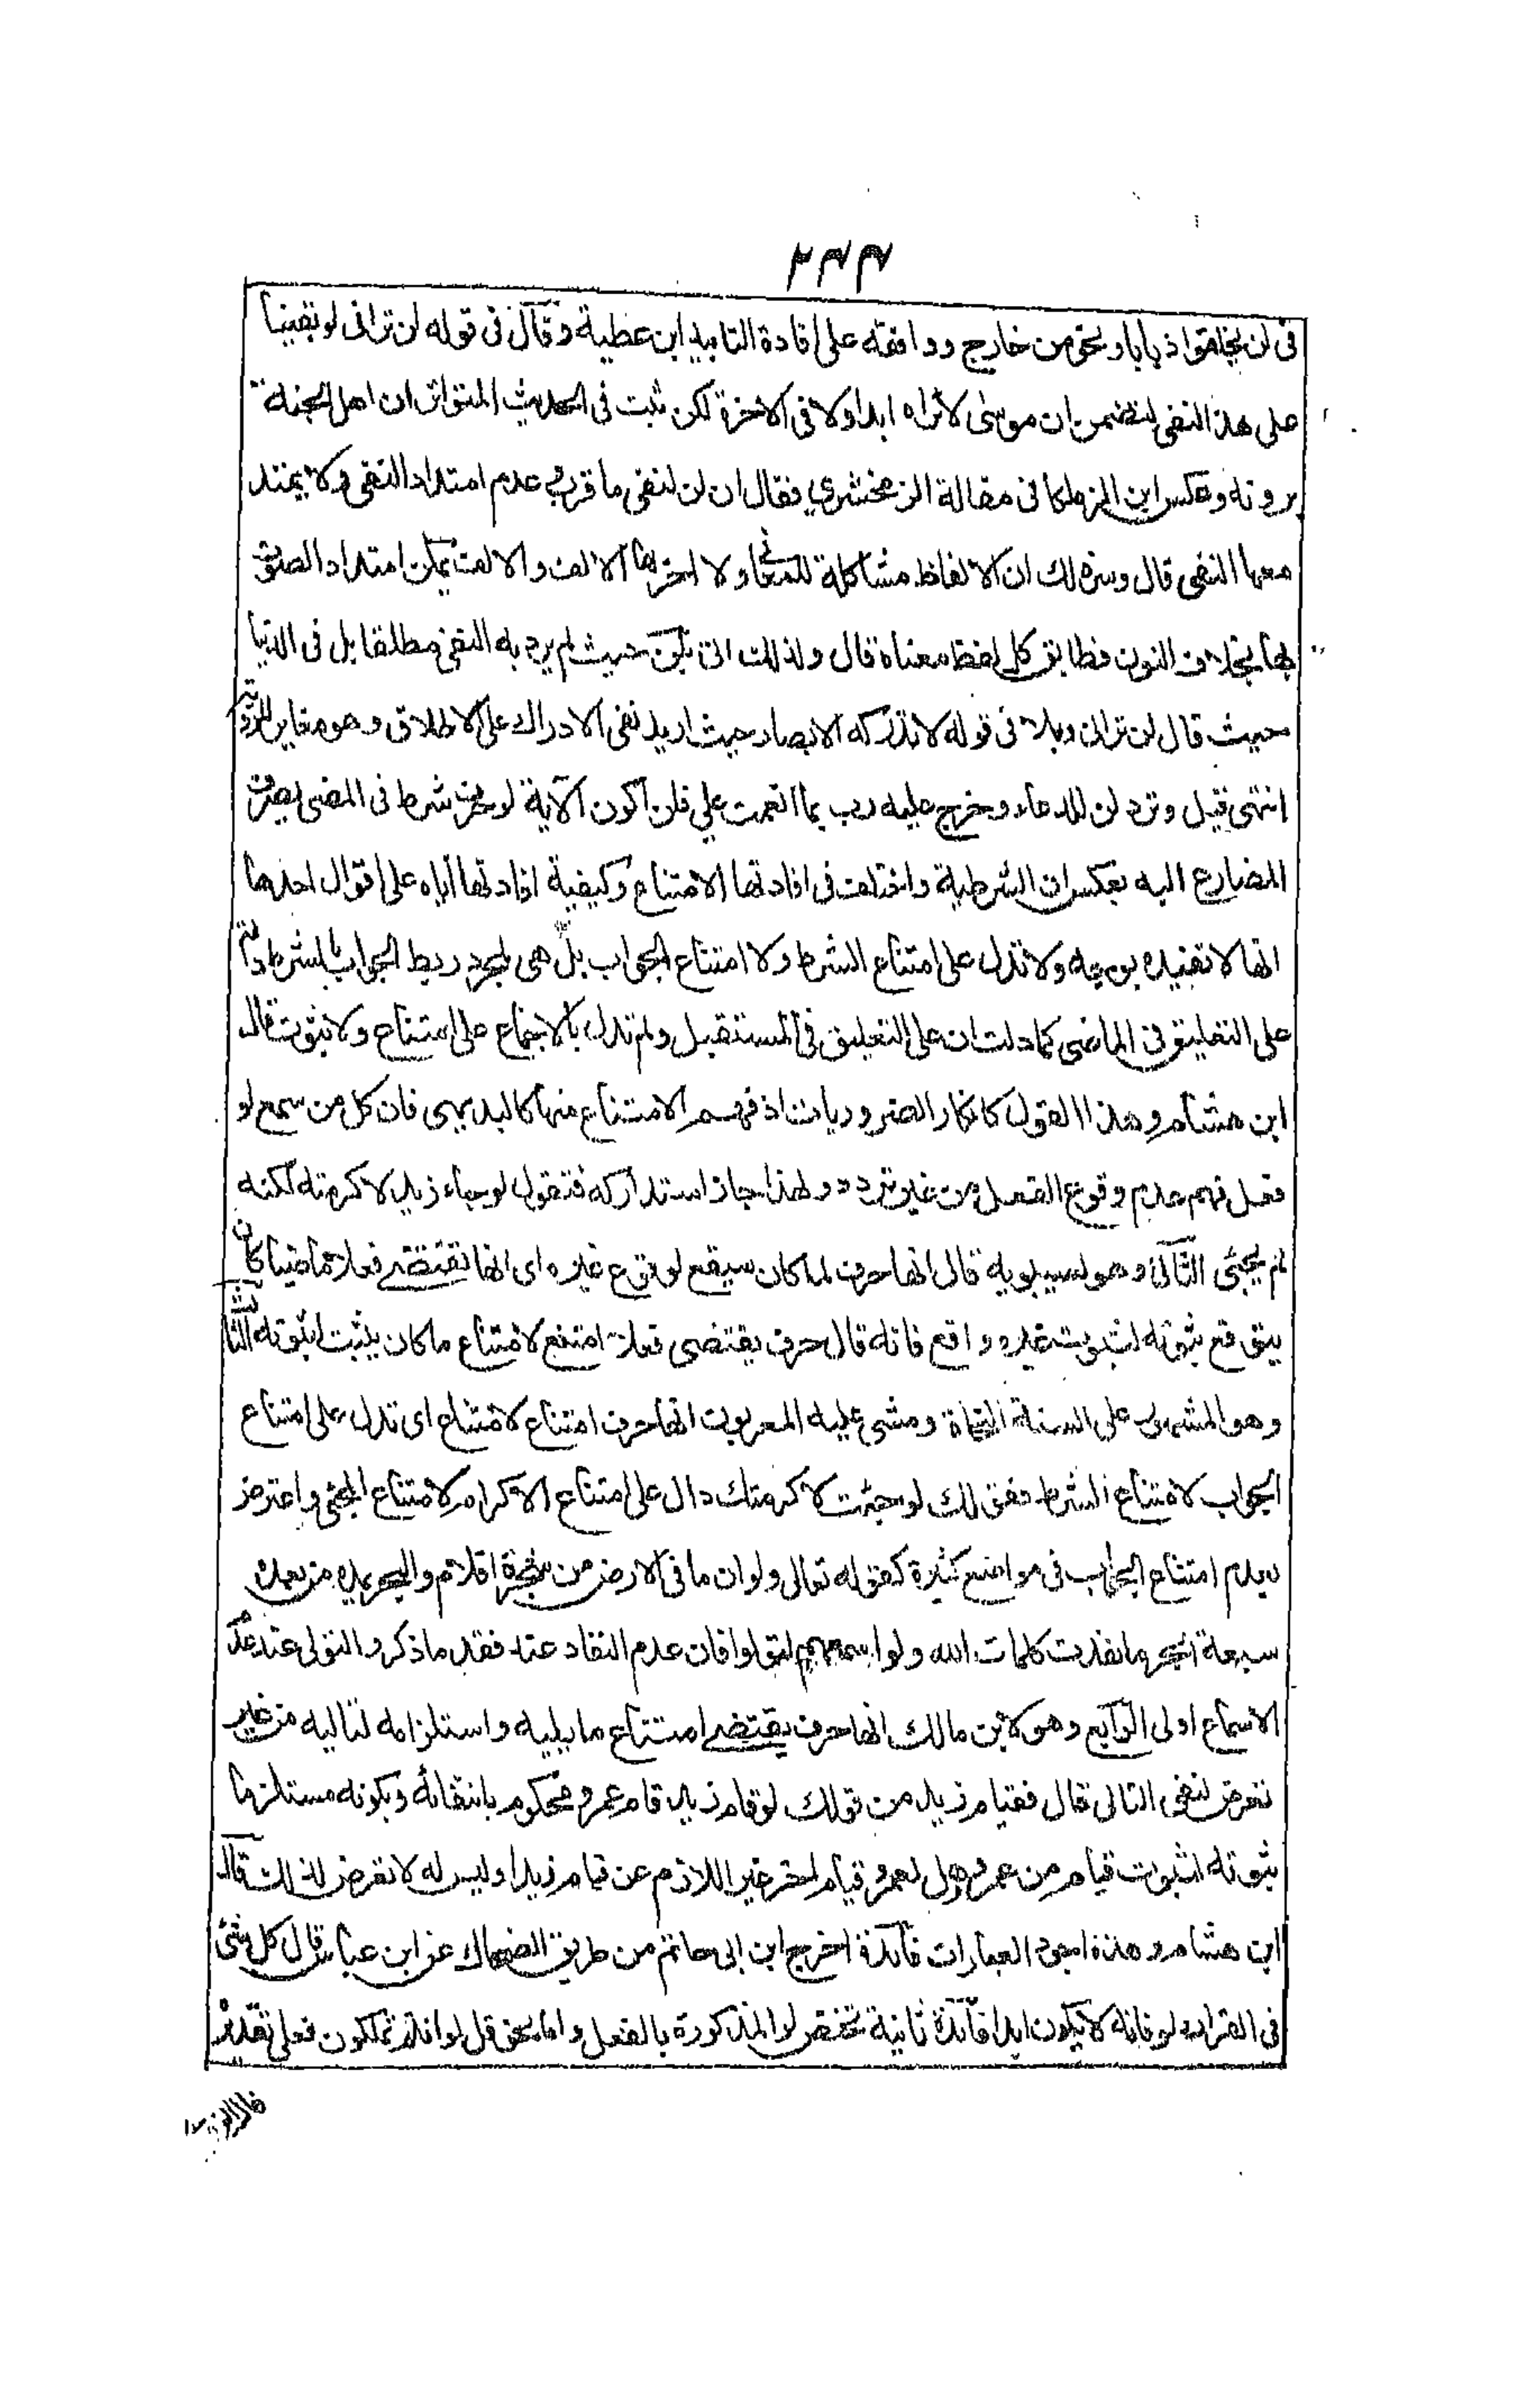 ٢٣٣
فى لن يخلقوا ذبابا ونحوه من خارج ووافقه على افادة التابيد ابن عطية وقال فى قوله لن ترانى لو بقينا
على هذا النفى لتضمن ان موسى لا يراه ابدا ولا فى الاخرة لكن ثبت فى الحديث المتواتر ان اهل الجنة
يرونه وعكس ابن الزملكانى مقالة الزمخشري فقال ان لن لنفى ما قرب وعدم امتداد النفى ولا يمتد
معها النفى قال وسر ذلك ان الالفاظ مشاكلة للمعانى ولا اخرها الالف والالف يمكن امتداد الصوت
بها بخلاف النون فطابق كل لفظ معناه قال ولذلك اتى بلن حيث لم يرد به النفى مطلقا بل فى الدنيا
حيث قال لن ترانى وبلا فى قوله لا تدركه الابصار حيث اريد نفى الادراك على الاطلاق وهو مغاير للرؤية
انتهى قيل وترد لن للدعاء وخرج عليه رب بما انعمت علي فلن اكون الآية لو حرف شرط فى المضى يصرف
المضارع اليه بعكس ان الشرطية واختلف فى افادتها الامتناع وكيفية افادتها اياه على اقوال احدها
انها لا تفيده بوجه ولا تدل على امتناع الشرط ولا امتناع الجواب بل هى لمجرد ربط الجواب بالشرط دالة
على التعليق فى الماضى كما دلت ان على التعليق فى المستقبل ولم تدل بالاجماع على امتناع ولا ثبوت قال
ابن هشام وهذا القول كانكار الضروريات اذ فهم الامتناع منها كالبديهى فان كل من سمع لو
فعل فهم عدم وقوع الفعل من غير تردد ولهذا جاز استدراكه فتقول لو جاء زيد لاكرمته لكنه
لم يجئ الثانى وهو لسيبويه قال انها حرف لما كان سيقع لوقوع غيره اى انها تقتضى فعلا ماضيا كان
يتوقع ثبوته لثبوت غيره واقع فانه قال حرف يقتضى فعلا امتنع لامتناع ما كان يثبت لثبوته الثالث
وهو المشهور على السنة النحاة ومشى عليه المعربون انها حرف امتناع لامتناع اى تدل على امتناع
الجواب لامتناع الشرط فقولك لو جئت لاكرمتك دال على امتناع الاكرام لامتناع المجئ واعترض
بعدم امتناع الجواب فى مواضع كثيرة كقوله تعالى ولو ان ما فى الارض من شجرة اقلام والبحر يمده من بعده
سبعة ابحر ما نفدت كلمات الله ولو اسمعهم لتولوا فان عدم النفاد عند فقد ما ذكر والتولى عند عدم
الاسماع اولى الرابع وهو لابن مالك انها حرف يقتضى امتناع ما يليه واستلزامه لتاليه من غير
تعرض لنفى التالى قال فقيام زيد من قولك لو قام زيد قام عمرو محكوم بانتفائه وبكونه مستلزما
ثبوته لثبوت قيام من عمرو وهل لعمرو قيام اخر غير اللازم عن قيام زيد او ليس له لا تعرض لذلك قال
ابن هشام وهذه اجود العبارات فائدة اخرج ابن ابى حاتم من طريق الضحاك عن ابن عباس قال كل شئ
فى القران لو فانه لا يكون ابدا فائدة ثانية تختص لو المذكورة بالفعل واما نحو قل لو انتم تملكون فعلى تقديره